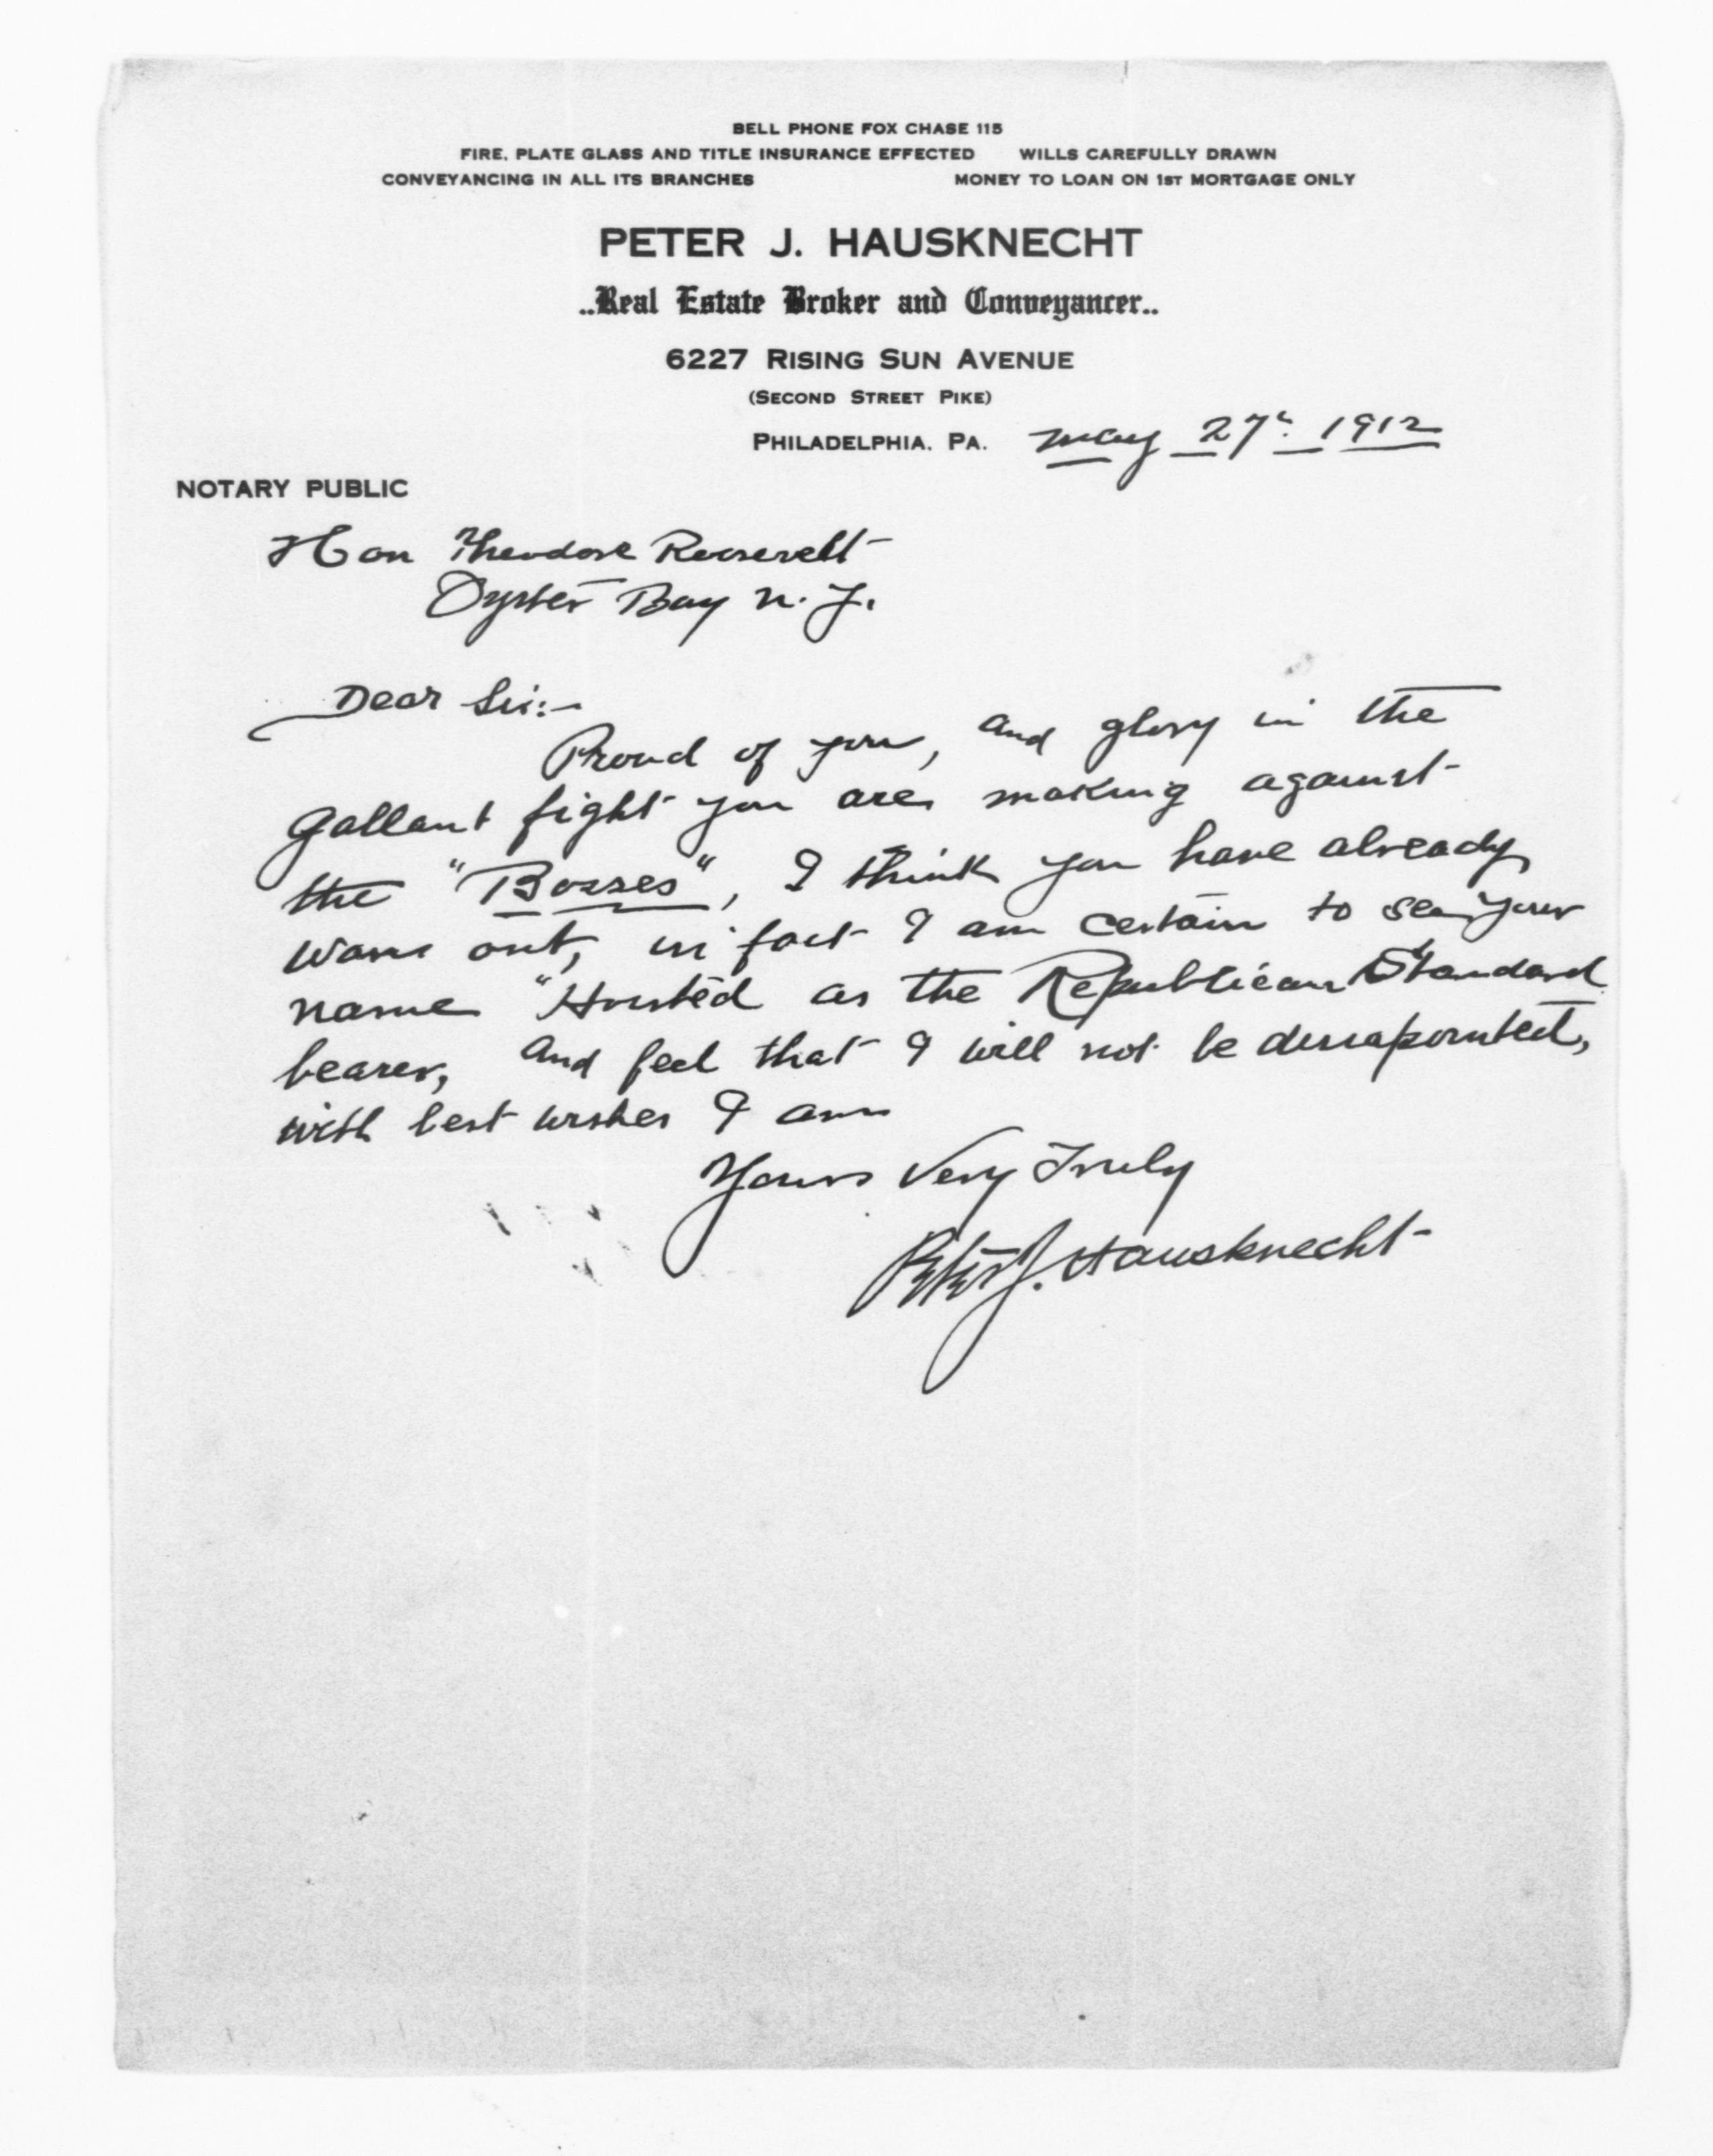 BELL PHONE FOX CHASE 115
FIRE, PLATE GLASS AND TITLE INSURANCE EFFECTED WILLS CAREFULLY DRAWN
CONVEYANCING IN ALL ITS BRANCHES MONEY TO LOAN ON 1ST MORTGAGE ONLY
PETER J. HAUSKNECHT
..Real Estate Broker and Conveyancer..
6227 RISING SUN AVENUE
(SECOND STREET PIKE)
PHILADELPHIA, PA. May 27th 1912
NOTARY PUBLIC
Hon Theodore Roosevelt
Oyster Bay N.Y.
Dear Sir:-
Proud of you, and glory in the
Gallant fight you are making against
the "Bosses", I think you have already
won out, in fact I am certain to see your
name "Hoisted as the Republican Standard
bearer, and feel that I will not be dissapointed,
with best wishes I am
Yours Very Truly
Peter J. Hausknecht